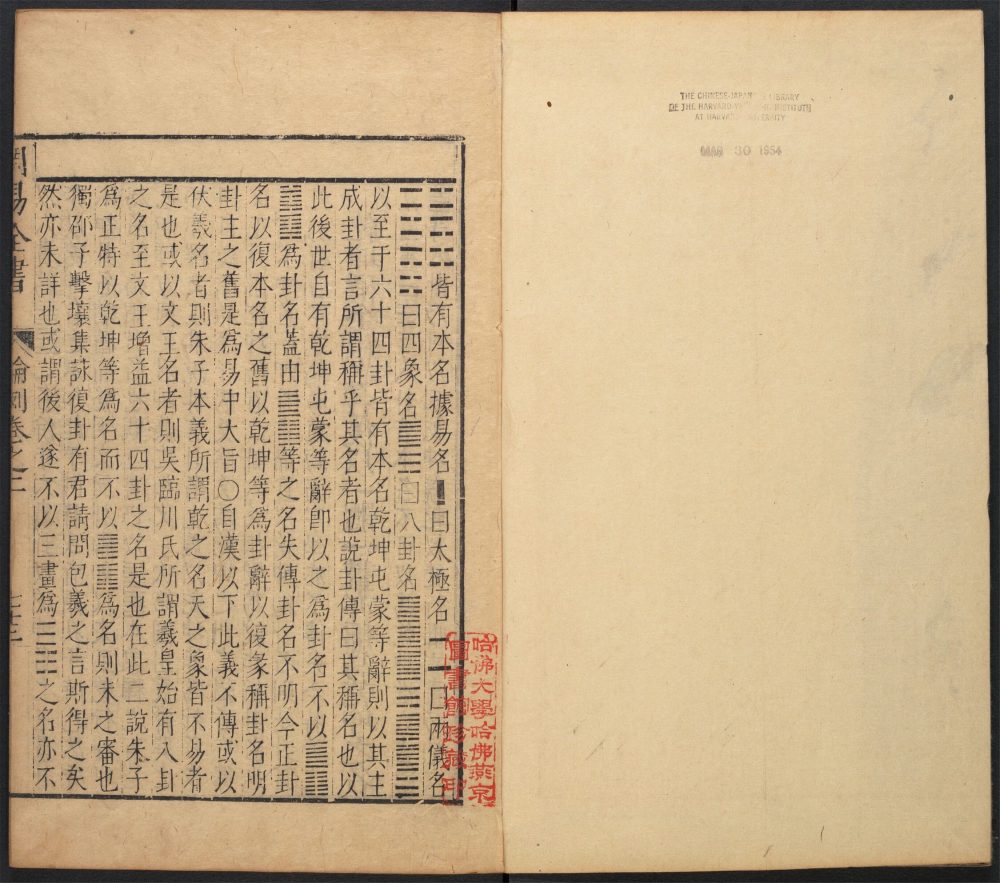 THE CHINESE-JAPAN LIBRARY
OF THE HARVARD- INSTITUTE
AT HARVARD UNIVERSITY
MAR 30 1954
☰☱☲☳皆有本名據易名▍曰太極名⚊⚋曰兩儀名
曰四象名曰八卦名
以至于六十四卦皆有本名乾坤屯蒙等辭則以其主
成卦者言所謂稱乎其名者也說卦傳曰其稱名也以
此後世自有乾坤屯蒙等辭卽以之爲卦名不以
爲卦名蓋由等之名失傳卦名不明今正卦
名以復本名之舊以乾坤等爲卦辭以復彖稱卦名明
卦主之舊是爲易中大旨○自漢以下此義不傳或以
伏羲名者則朱子本義所謂乾之名天之象皆不易者
是也或以文王名者則吳臨川氏所謂羲皇始有八卦
之名至文王增益六十四卦之名是也在此二說朱子
爲正特以乾坤等爲名而不以爲名則未之審也
獨邵子擊壤集詠復卦有君請問包羲之言斯得之矣
然亦未詳也或謂後人遂不以三畫爲之名亦不
周易全書 論例卷之二
哈佛大學哈佛燕京
圖書館珍藏印